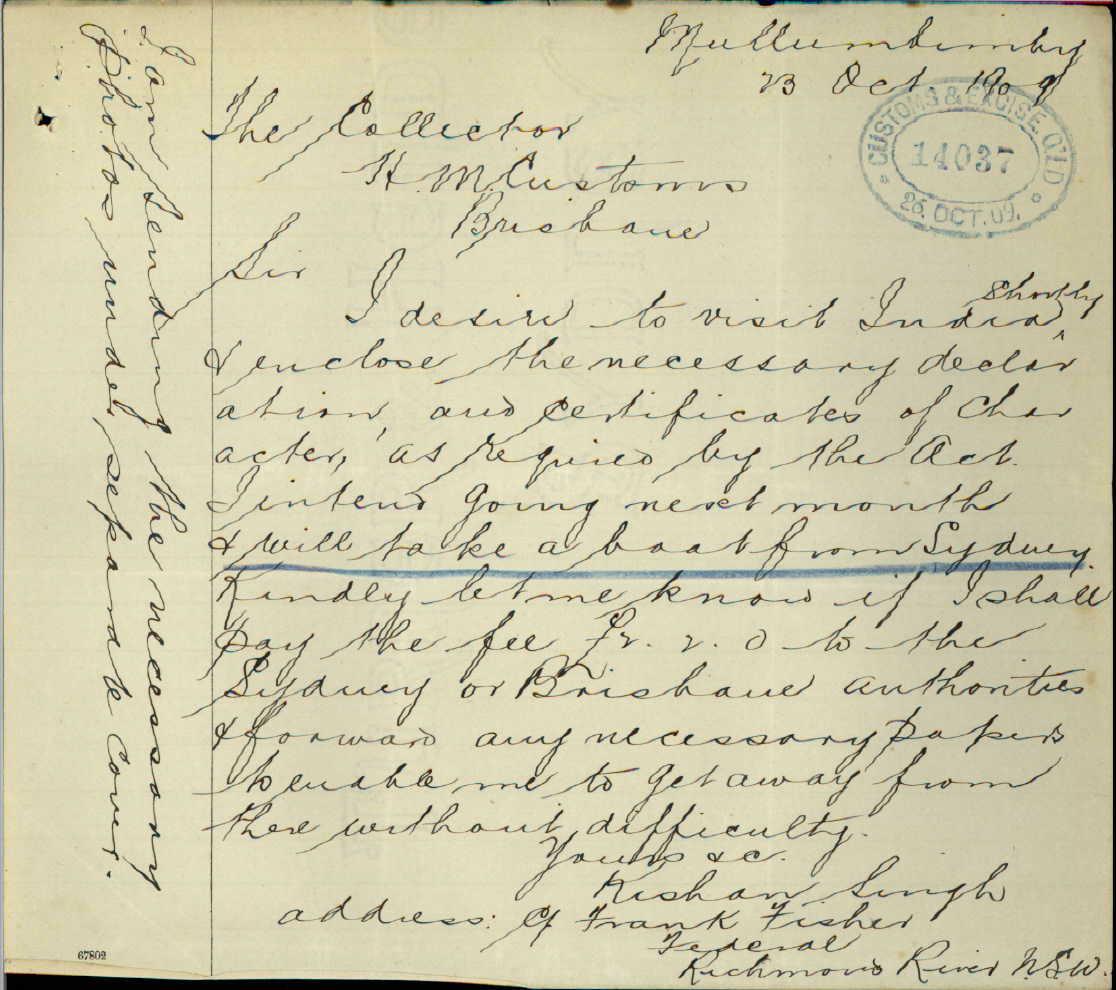 Mullumbimby
23 Oct 1909
CUSTOMS & EXCISE. Q'LD
14037
26. OCT. 09.
The Collector
H. M. Customs
Brisbane
Sir
I desire to visit India shortly
& enclose the necessary declar
ation, and certificates of Char
acter, as required by the Act.
I intend going next month
& will take a boat from Sydney.
Kindly let me know if I shall
pay the fee Fr. 2. 0 to the
Sydney or Brisbane authorities
& forward any necessary papers
to enable me to get away from
there without difficulty.
Yours &c.
Kishan Singh
address: C/ Frank Fisher
Federal
Richmond River N.S.W.
I am sending the necessary
Photos under separate cover.
67802